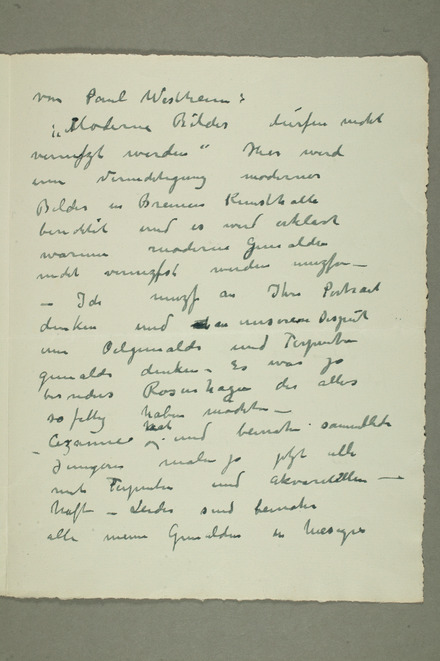 von Paul Westheim:
"Moderne Bilder dürfen nicht
vernifzt werden" Hier wird
eine moderner
Bilder in Bremens Kunsthalle
berichtet und es wird erklärt
warum moderne Gemälden
nicht vernifzt werden
– Ich muzf an Ihre Portrait
denken und an unseren Disput
um Oelgemälde und Terpentin
gemälde denken – Es war ja
besonders Rosenhagen der alles
so fettig haben möchte –
– Cezanne hat und beinahe sämmtliche
Jüngere malen ja jetzt alle
mit Terpentin und akvarellen –
haft – Leider sind beinahe
alle meine Gemälden in